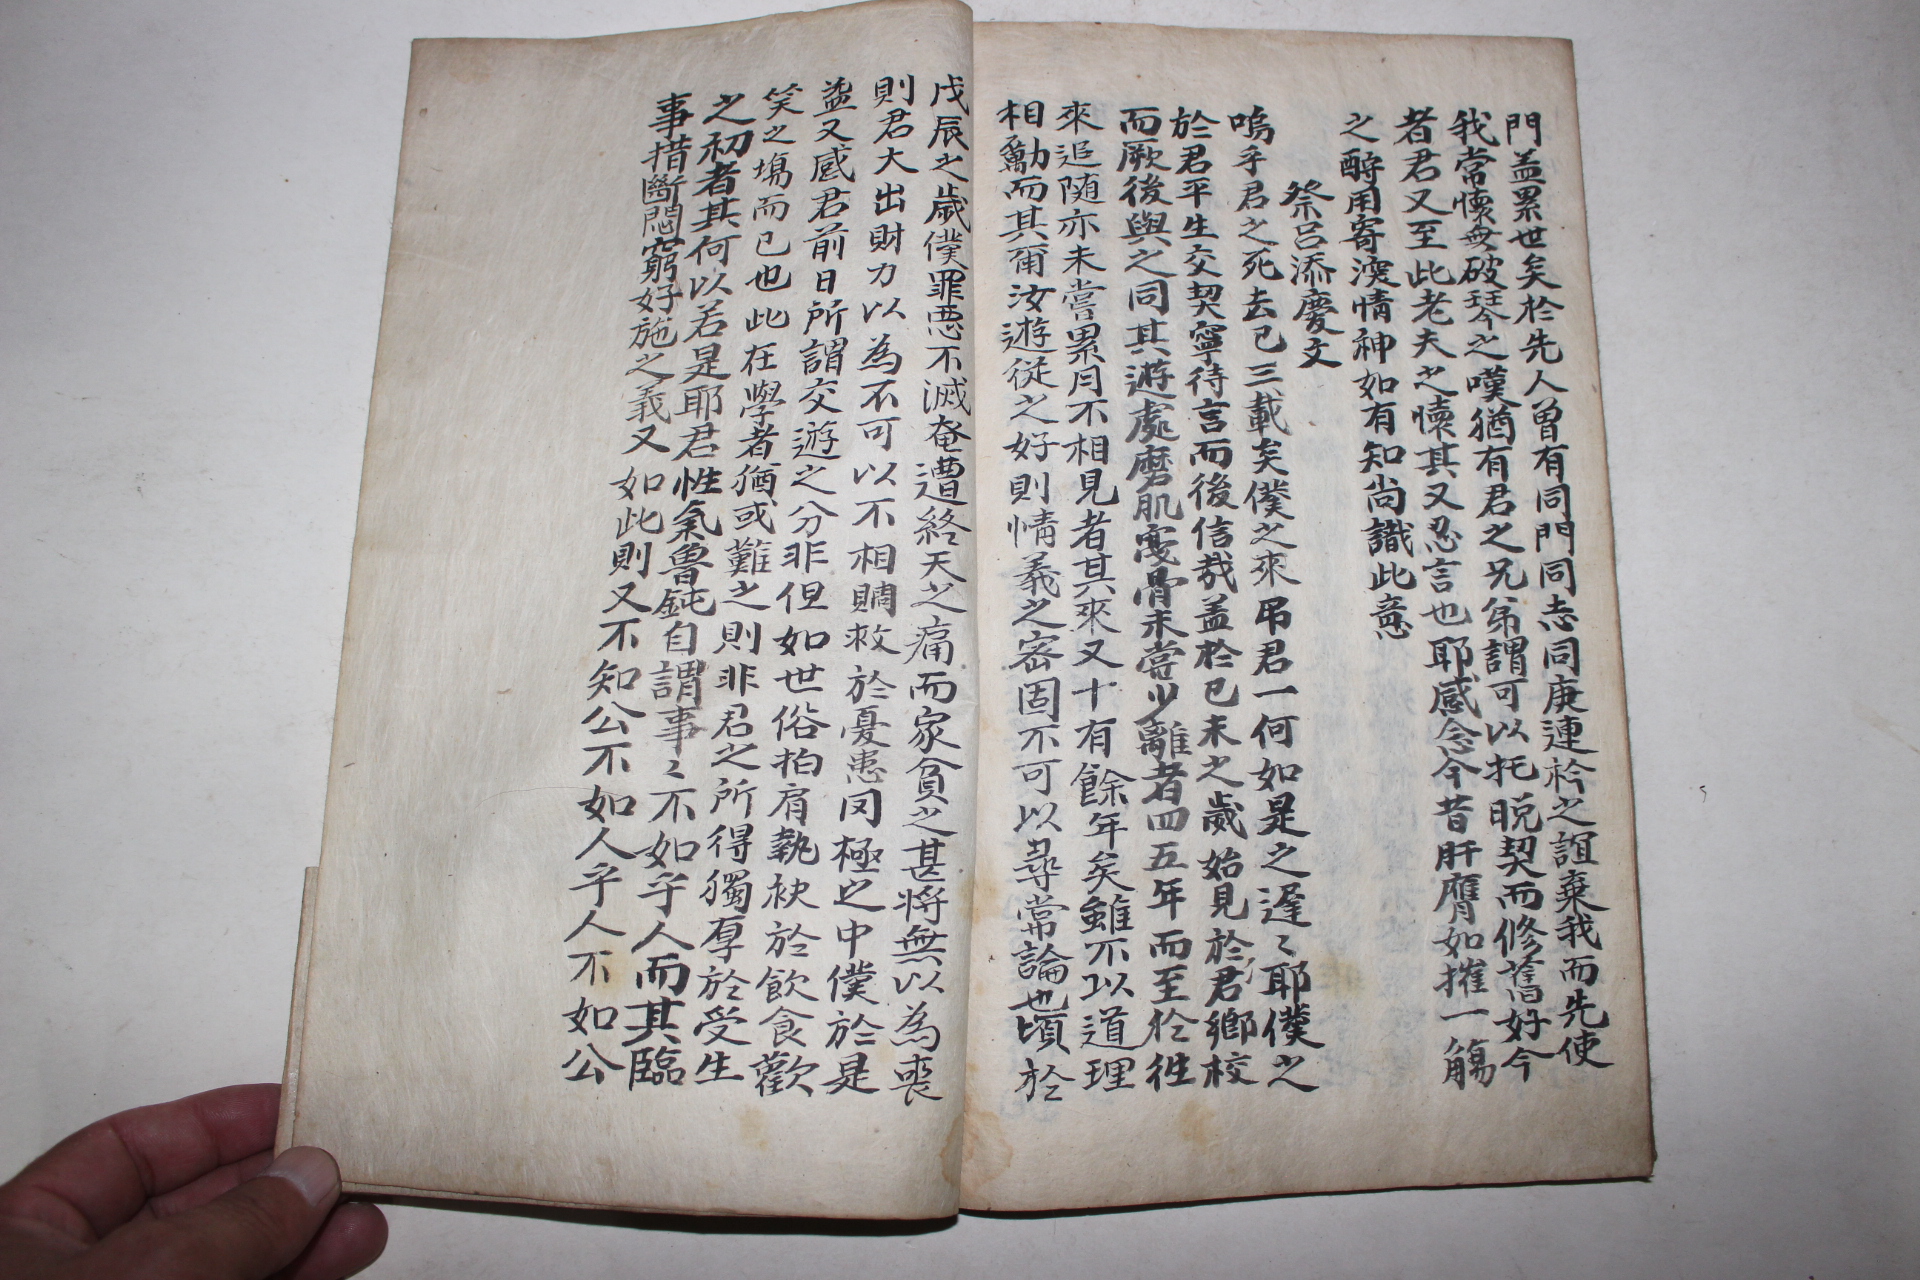 門盖累世矣於先人曾有同門同志同庚連衿之誼棄我而先使
我常懷無破琴之嘆猶有君之兄弟謂可以托脱契而修舊好今
者君又至此老夫之懷其又忍言也耶感念今昔肝膺如摧一觴
之酹用寄渎情神如有知尚識此意
祭呂添慶文
嗚乎君之死去已三載矣僕之來吊君一何如是之遲〻耶僕之
於君平生交契寧待言而後信哉盖於已未之歲始見於君鄉校
而厥後與之同其遊處磨肌戞骨未嘗少離者四五年而至於徃
來追随亦未嘗累月不相見者其來又十有餘年矣雖不以道理
相勸而其爾汝遊從之好則情義之密固不可以尋常論也頃於
戊辰之歲僕罪惡不滅奄遭終天之痛而家貧之甚将無以為喪
則君大出財力以為不可以不相賙救於憂患罔極之中僕於是
益又感君前日所謂交遊之分非但如世俗拍肩執袂於飲食歡
笑之塲而已也此在學者猶或難之則非君之所得獨厚於受生
之初者其何以若是耶君性氣魯鈍自謂事〻不如乎人而其臨
事措斷悶窮好施之義又如此則又不知公不如人乎人不如公